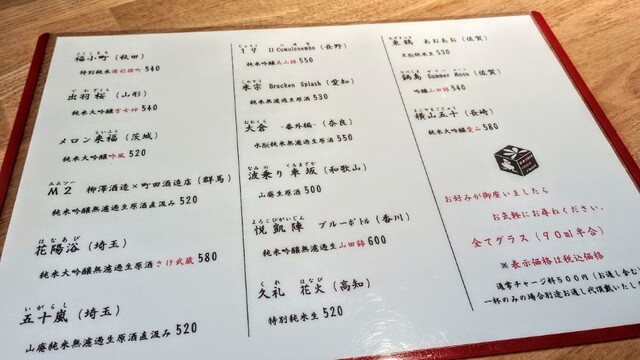 福小町 (秋田)
特別純米備前雄町 540
出羽桜 (山形)
純米大吟醸雪女神 540
メロン来福 (茨城)
純米大吟醸吟風 520
M2 柳澤酒造×町田酒造店 (群馬)
純米吟醸無濾過生原酒直汲み 520
花陽浴 (埼玉)
純米大吟醸無濾過生原酒さけ武蔵 580
五十嵐 (埼玉)
山廃純米無濾過生原酒直汲み 520
Il Cumulonembo (長野)
純米吟醸美山錦 550
米宗 Brocken Splash (愛知)
純米無濾過生原酒 530
大倉 -番外編- (奈良)
水酛純米無濾過生原酒 550
波乗り 車坂 (和歌山)
山廃生原酒 500
悦凱陣 ブルーボトル (香川)
純米吟醸無濾過生山田錦 600
久礼 花火 (高知)
特別純米生 520
東鶴 あおあお (佐賀)
生酛純米生 530
鍋島 Summer Moon (佐賀)
吟醸山田錦 540
横山五十 (長崎)
純米大吟醸愛山 580
お好みが御座いましたら
お気軽にお尋ねください。
全てグラス (90ml半合)
※表示価格は税込価格
通常チャージ料500円 (お通し含む
一杯のみの場合別途お通し代頂戴いたし